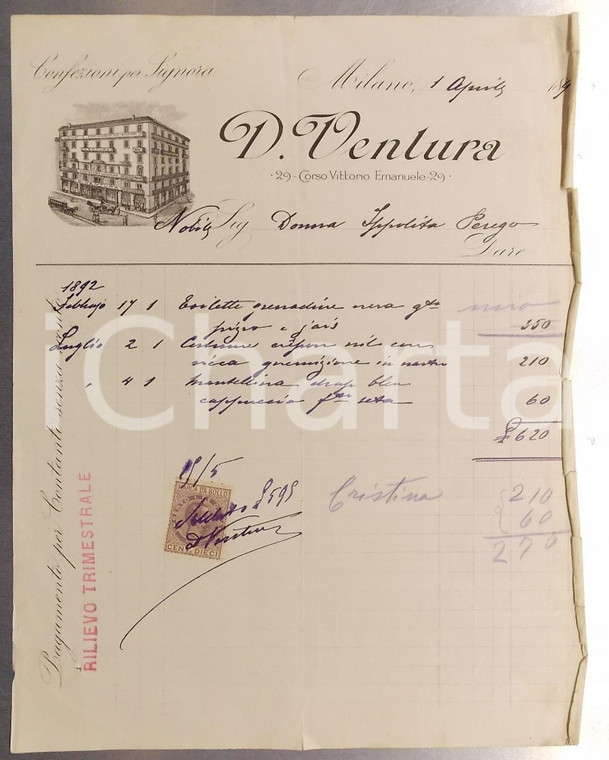 Confezioni per Signora
Milano, 1 Aprile 189
D. Ventura
29 - Corso Vittorio Emanuele - 29
Nobile Sig Donna Ippolita Perego
Dare
1892
Febbrajo 17 1 Toilette grenadine nera gto nero
frizio e jais 350
Luglio 2 1 Costume crépon nil con
ricca guernizione in nastro 210
" 4 1 Mantellina drap bleu
cappuccio fto seta 60
£ 620
iCharta
15/5
MARCA DA BOLLO
Saldato £ 595
D Ventura
CENT. DIECI
Cristina 210
60
270
Pagamento per Contanti senza
RILIEVO TRIMESTRALE